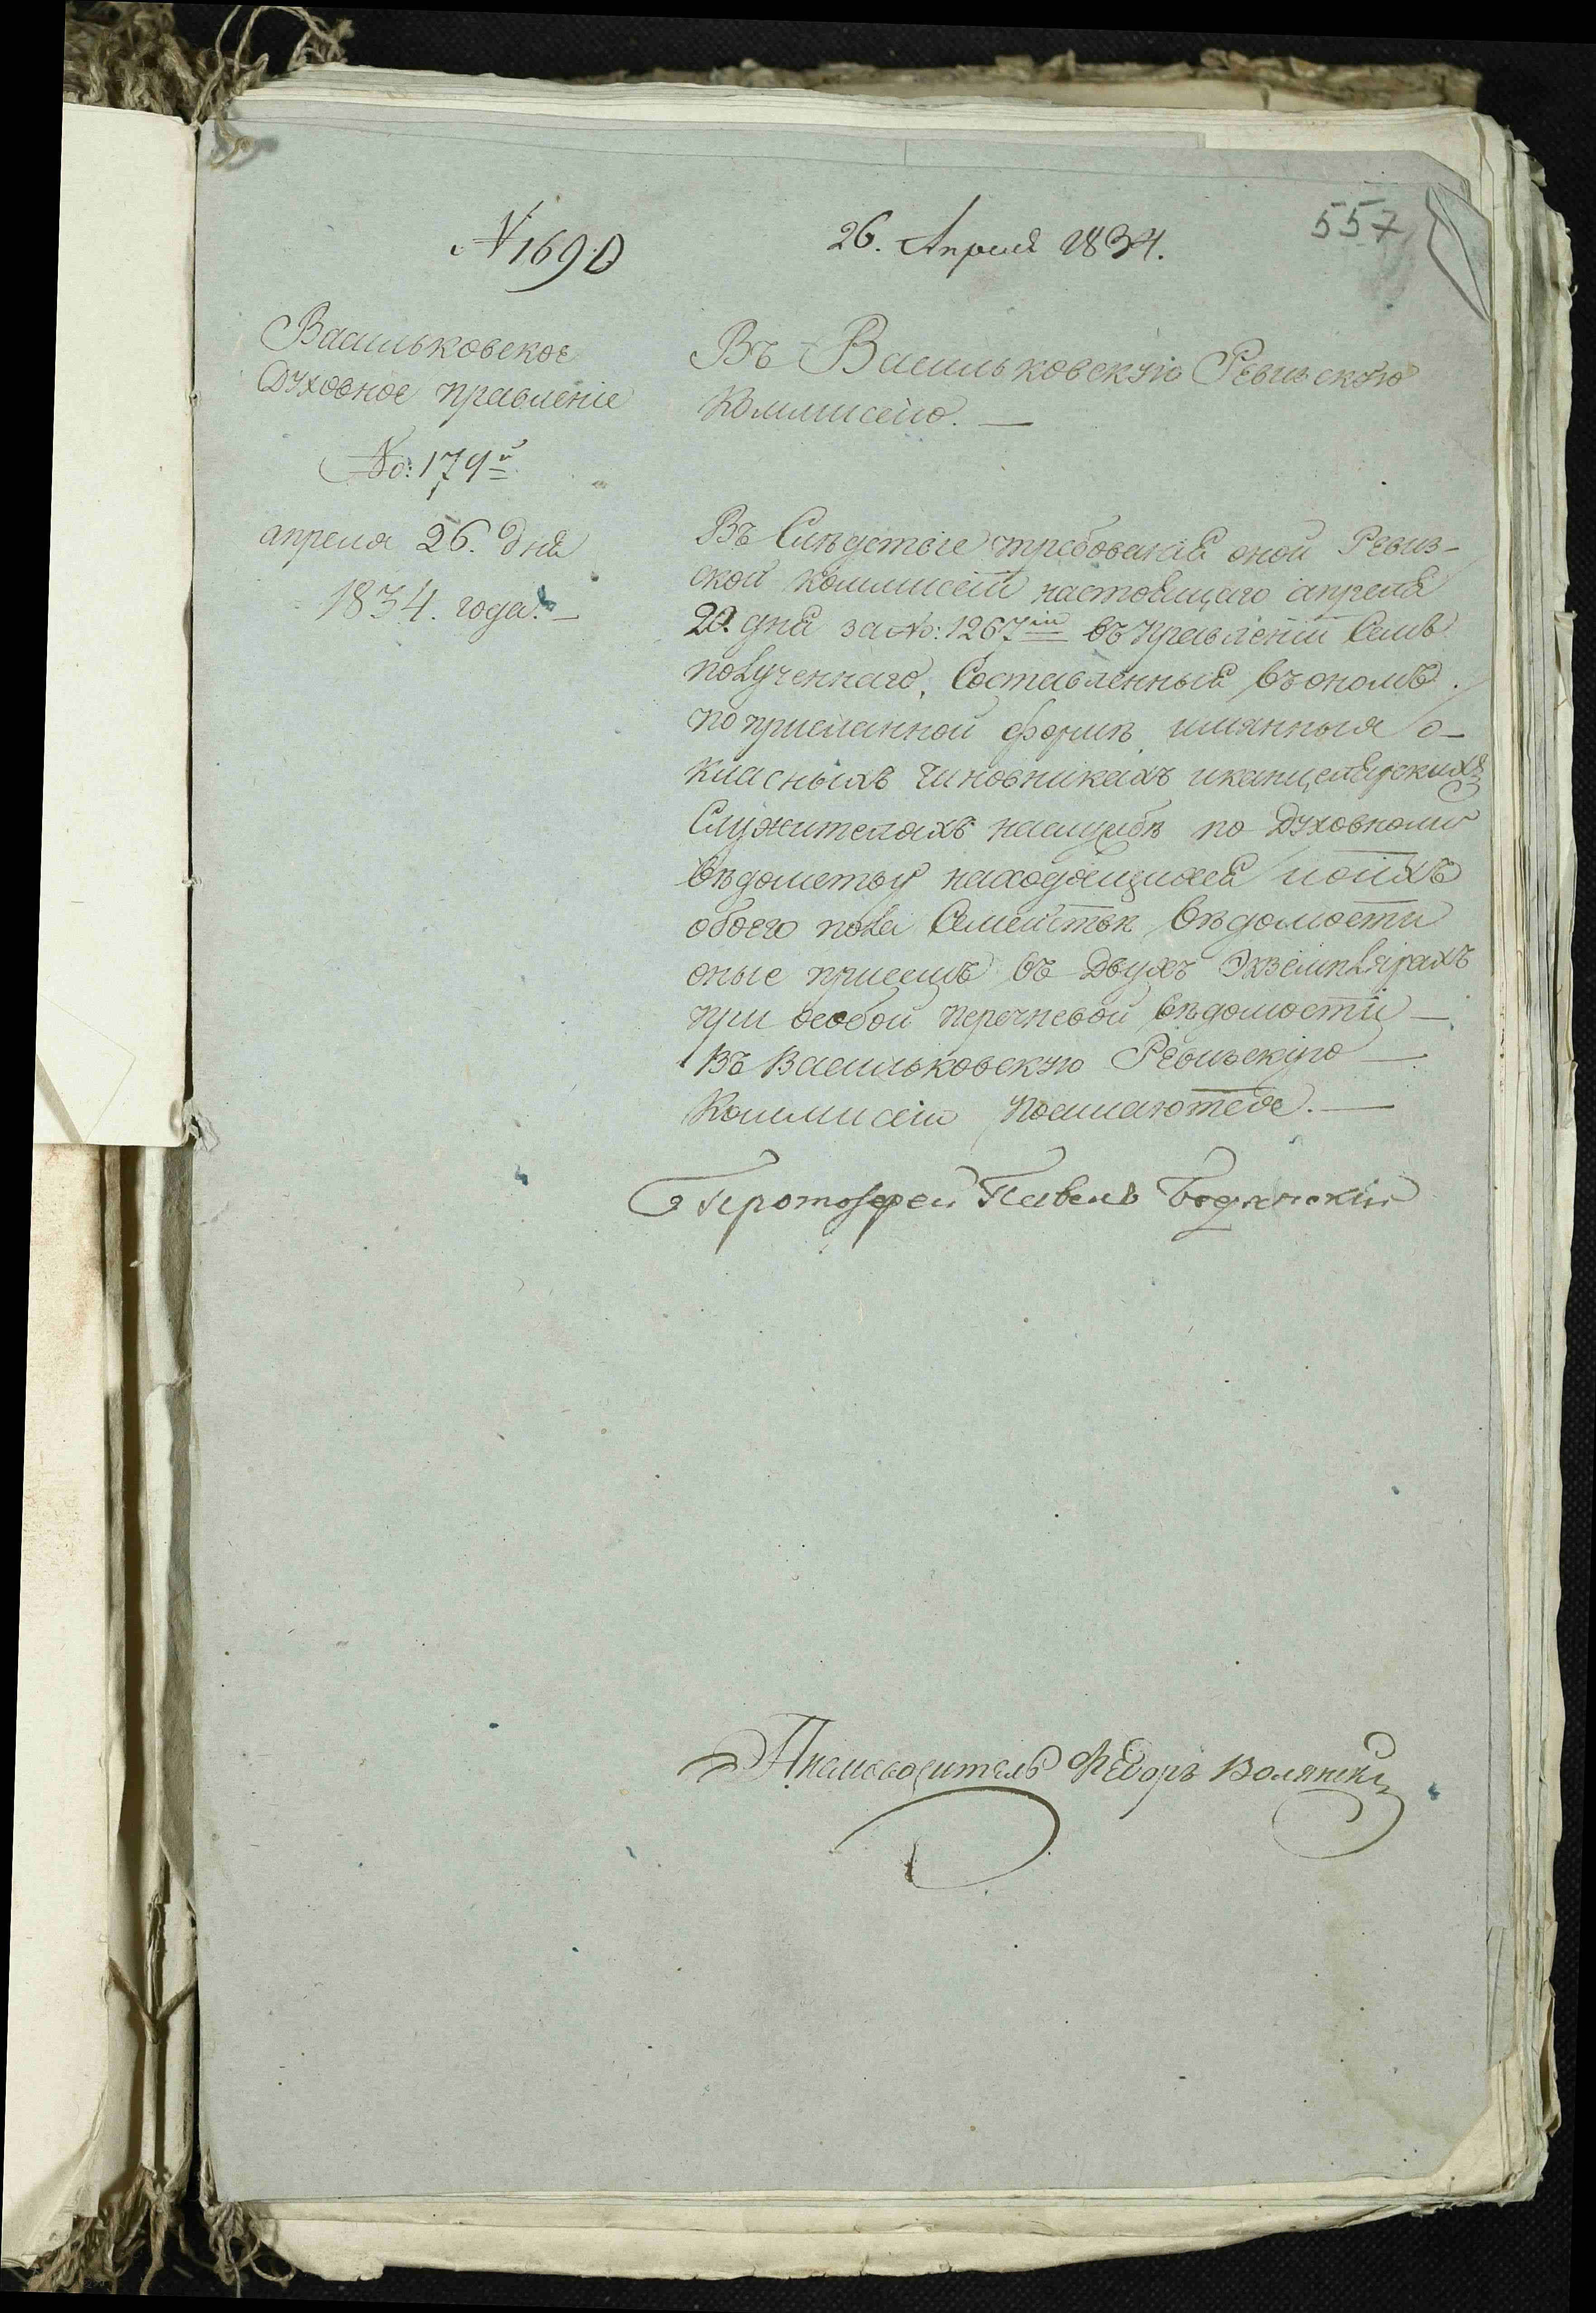 557
N 1690
26. Апреля 1834.
Васильковское
Духовное правленіе
No: 179й
апреля 26. дня
1834. года. —
Въ Васильковскую Ревизскую
Коммисію. —
Въ Слѣдствіе требованія оной Ревиз-
ской коммисіи настоящаго апреля
20. дня за No: 1267мъ въ Правленіи Семъ
полученнаго, Составленныя въ ономъ
по присланной формѣ имянныя о-
класныхъ чиновникахъ и канцелярскихъ
Служителяхъ на службѣ по Духовному
вѣдомству находящихся и о ихъ
обоего пола Семействѣ вѣдомости
оныс присемъ въ двухъ Экземплярахъ
при особой перечневой вѣдомости —
Въ Васильковскую Ревизскую —
Коммисію посылаются. —
Протоіерей Павелъ Бодянскій
Писмоводитель Федоръ Волянскій